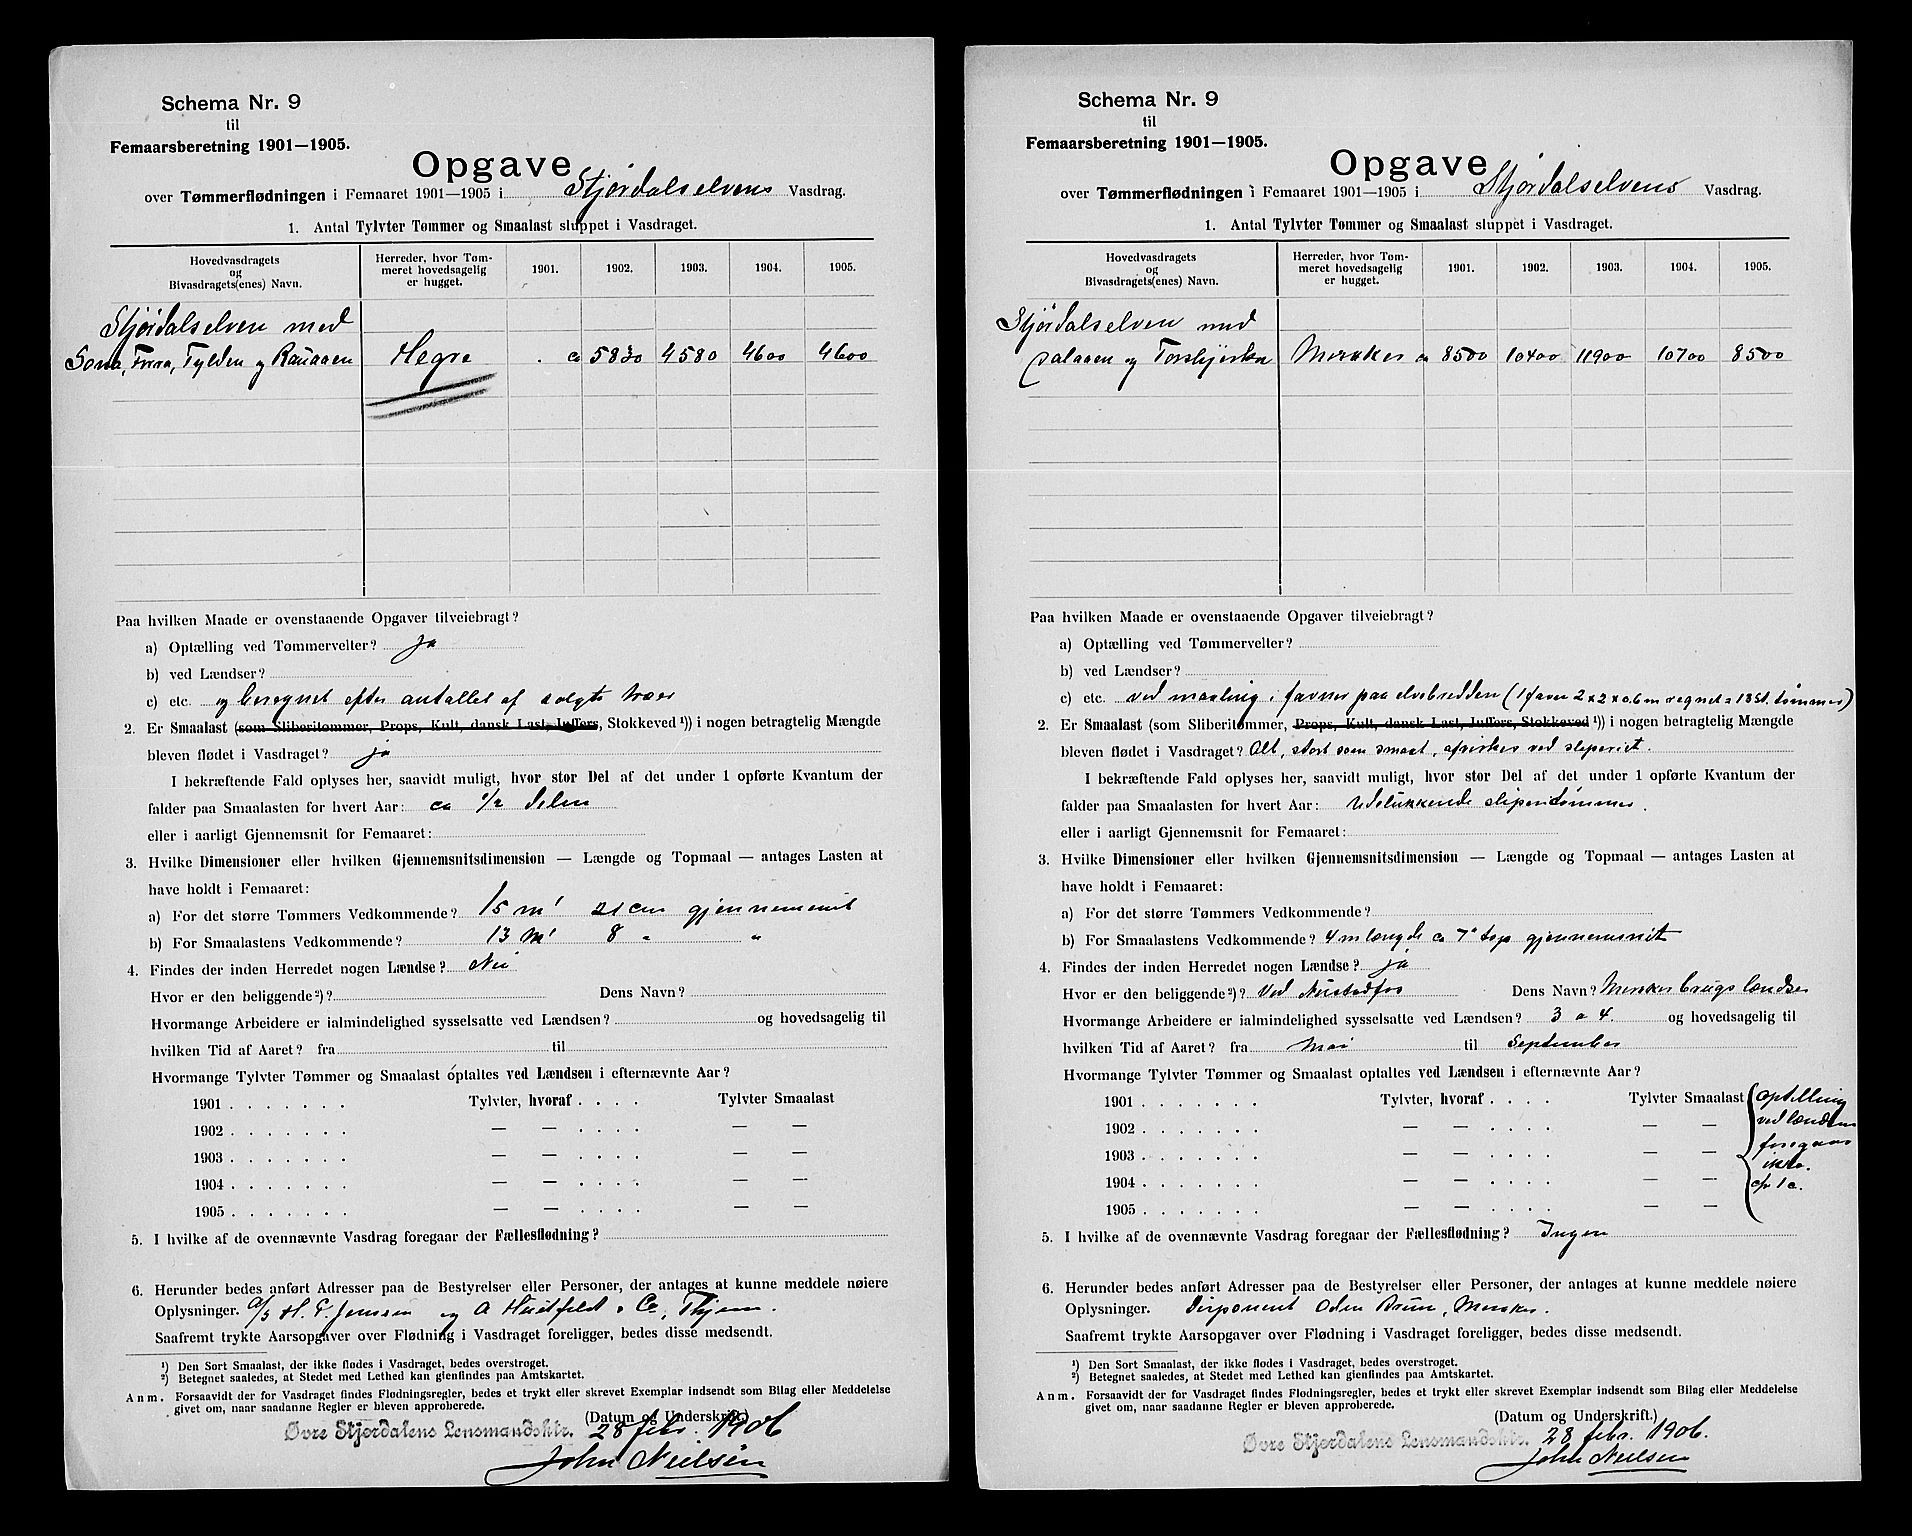 Schema Nr. 9
til
Femaarsberetning 1901—1905.
Opgave
over Tømmerflødningen i Femaaret 1901—1905 i Stjørdalselvens Vasdrag.
1. Antal Tylvter Tømmer og Smaalast sluppet i Vasdraget.
Hovedvasdragets og Bivasdragets(enes) Navn. Herreder, hvor Tømmeret hovedsagelig er hugget. 1901. 1902. 1903. 1904. 1905.
Stjørdalselven med
Sona, Forra, Tylden og Rauaaen Hegre . ca 5830 4580 4600 4600
Paa hvilken Maade er ovenstaaende Opgaver tilveiebragt?
a) Optælling ved Tømmervelter? ja
b) ved Lændser?
c) etc. og beregnet efter antallet af solgte trær
2. Er Smaalast (som Sliberitømmer, Props, Kult, dansk Last, Juffers, Stokkeved ¹)) i nogen betragtelig Mængde
bleven flødet i Vasdraget? ja
I bekræftende Fald oplyses her, saavidt muligt, hvor stor Del af det under 1 opførte Kvantum der
falder paa Smaalasten for hvert Aar: ca 1/2 delen
eller i aarligt Gjennemsnit for Femaaret:
3. Hvilke Dimensioner eller hvilken Gjennemsnitsdimension — Længde og Topmaal — antages Lasten at
have holdt i Femaaret:
a) For det større Tømmers Vedkommende? 15 m' 21 cm gjennemsnit
b) For Smaalastens Vedkommende? 13 m' 8 " "
4. Findes der inden Herredet nogen Lændse? Nei
Hvor er den beliggende²)? Dens Navn?
Hvormange Arbeidere er ialmindelighed sysselsatte ved Lændsen? og hovedsagelig til
hvilken Tid af Aaret? fra til
Hvormange Tylvter Tømmer og Smaalast optaltes ved Lændsen i efternævnte Aar?
1901 . . . . . . . Tylvter, hvoraf . . . . Tylvter Smaalast
1902 . . . . . . . — — . . . . — —
1903 . . . . . . . — — . . . . — —
1904 . . . . . . . — — . . . . — —
1905 . . . . . . . — — . . . . — —
5. I hvilke af de ovennævnte Vasdrag foregaar der Fællesflødning?
6. Herunder bedes anført Adresser paa de Bestyrelser eller Personer, der antages at kunne meddele nøiere
Oplysninger. A/S H. P. Jenssen og A Huitfeldt & Co, Thjem.
Saafremt trykte Aarsopgaver over Flødning i Vasdraget foreligger, bedes disse medsendt.
¹) Den Sort Smaalast, der ikke flødes i Vasdraget, bedes overstrøget.
²) Betegnet saaledes, at Stedet med Lethed kan gienfindes paa Amtskartet.
Anm. Forsaavidt der for Vasdraget findes Flødningsregler, bedes et trykt eller skrevet Exemplar indsendt som Bilag eller Meddelelse
givet om, naar saadanne Regler er bleven approberede.
(Datum og Underskrift.)
Øvre Stjørdalens Lensmandsktr. 28 febr. 1906
John Nielsen
Schema Nr. 9
til
Femaarsberetning 1901—1905.
Opgave
over Tømmerflødningen i Femaaret 1901—1905 i Stjørdalselvens Vasdrag.
1. Antal Tylvter Tømmer og Smaalast sluppet i Vasdraget.
Hovedvasdragets og Bivasdragets(enes) Navn. Herreder, hvor Tømmeret hovedsagelig er hugget. 1901. 1902. 1903. 1904. 1905.
Stjørdalselven med
Dalaaen og Torsbjørka Meraker ca 8500 10400 11900 10700 8500
Paa hvilken Maade er ovenstaaende Opgaver tilveiebragt?
a) Optælling ved Tømmervelter?
b) ved Lændser?
c) etc. ved maaling i favner paa elvebredden (1 favn 2 x 2 x 0.6 m regnet = 18 St. tømmer)
2. Er Smaalast (som Sliberitømmer, Props, Kult, dansk Last, Juffers, Stokkeved ¹)) i nogen betragtelig Mængde
bleven flødet i Vasdraget? Alt, stort som smaat, avirkes ved sliperiet.
I bekræftende Fald oplyses her, saavidt muligt, hvor stor Del af det under 1 opførte Kvantum der
falder paa Smaalasten for hvert Aar: Udelukkende sliperitømmer.
eller i aarligt Gjennemsnit for Femaaret:
3. Hvilke Dimensioner eller hvilken Gjennemsnitsdimension — Længde og Topmaal — antages Lasten at
have holdt i Femaaret:
a) For det større Tømmers Vedkommende?
b) For Smaalastens Vedkommende? 4 m længde ca 7" top gjennemsnit
4. Findes der inden Herredet nogen Lændse? ja
Hvor er den beliggende²)? Ved Nustadfos Dens Navn? Meraker brugs lændse
Hvormange Arbeidere er ialmindelighed sysselsatte ved Lændsen? 3 a 4. og hovedsagelig til
hvilken Tid af Aaret? fra Mai til September
Hvormange Tylvter Tømmer og Smaalast optaltes ved Lændsen i efternævnte Aar?
1901 . . . . . . . Tylvter, hvoraf . . . . Tylvter Smaalast optelling
1902 . . . . . . . — — . . . . — — ved lændsen
1903 . . . . . . . — — . . . . — — foregaar
ikke.
1904 . . . . . . . — — . . . . — — cfr 1 c.
1905 . . . . . . . — — . . . . — —
5. I hvilke af de ovennævnte Vasdrag foregaar der Fællesflødning? Ingen
6. Herunder bedes anført Adresser paa de Bestyrelser eller Personer, der antages at kunne meddele nøiere
Oplysninger. Disponent Oden Brun, Meraker.
Saafremt trykte Aarsopgaver over Flødning i Vasdraget foreligger, bedes disse medsendt.
¹) Den Sort Smaalast, der ikke flødes i Vasdraget, bedes overstrøget.
²) Betegnet saaledes, at Stedet med Lethed kan gienfindes paa Amtskartet.
Anm. Forsaavidt der for Vasdraget findes Flødningsregler, bedes et trykt eller skrevet Exemplar indsendt som Bilag eller Meddelelse
givet om, naar saadanne Regler er bleven approberede.
(Datum og Underskrift.)
Øvre Stjørdalens Lensmandsktr. 28 febr. 1906.
John Nielsen